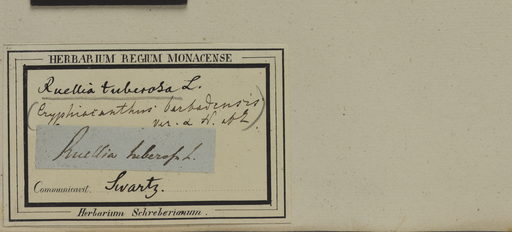 HERBARIUM REGIUM MONACENSE
Ruellia tuberosa L.
(Cryphiacanthus barbadensis
var. α N. ab E.)
Ruellia tuberosa L.
Communicavit. Swartz.
Herbarium Schreberianum.